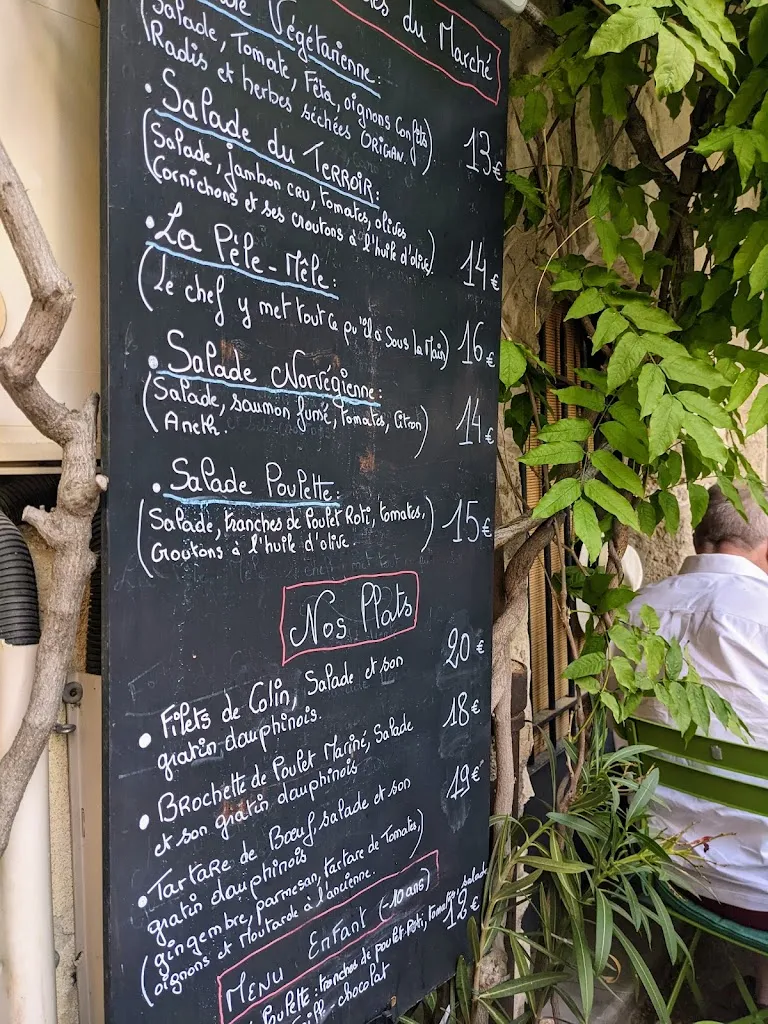 du Marché
Végétarienne:
(Salade, Tomate, Fêta, oignons confits
Radis et herbes séchées ORIGAN.) 13€
• Salade du TERROIR:
(Salade, jambon cru, tomates, olives
Cornichons et ses croutons à l'huile d'olive) 14€
• La Pêle-Mêle:
(Le chef y met tout ce qu'il a sous la Main) 16€
• Salade Norvégienne:
(Salade, saumon fumé, tomates, Citron
Aneth.) 14€
• Salade Poulette:
(Salade, tranches de Poulet Roti, tomates,
Croutons à l'huile d'olive.) 15€
Nos Plats
• Filets de Colin, Salade et son
gratin dauphinois. 20€
• Brochette de Poulet Mariné, Salade
et son gratin dauphinois 18€
• Tartare de Bœuf, salade et son
gratin dauphinois 19€
(gingembre, parmesan, tartare de Tomates,
oignons et Moutarde à l'ancienne.)
MENU Enfant (-10 ans) 12€
Poulette: tranches de poulet Roti, tomates, salade
chocolat